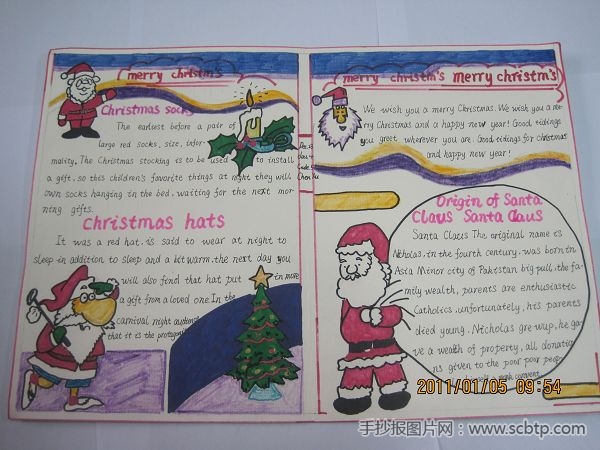 merry christm's
Christmas socks
The earliest before a pair of
large red socks, size, infor-
mality. The Christmas stocking is to be used to install
a gift, so this children's favorite things at night they will
own socks hanging in the bed, waiting for the next mor-
ning gifts.
Christmas hats
It was a red hat, is said to wear at night to
sleep in addition to sleep and a bit warm. the next day you
will also find that hat put in more
a gift from a loved one. In the
carnival night
that it is the
merry christm's merry christm's
We wish you a merry Christmas. We wish you a me-
rry Christmas and a happy new year! Good tidings
you greet wherever you are. Good tidings for christmas
and happy new year!
Origin of Santa
Claus Santa Claus
Santa Claus The original name is
Nicholas, in the fourth century, was born in
Asia Minor city of Pakistan big pull. the fa-
mily wealth, parents are enthusiastic
Catholics. unfortunately, his parents
died young. Nicholas grewup, he ga-
ve a wealth of property, all donatio
ns given to the poor poor people
2011/01/05 09:54
手抄报图片网：www.scbtp.com